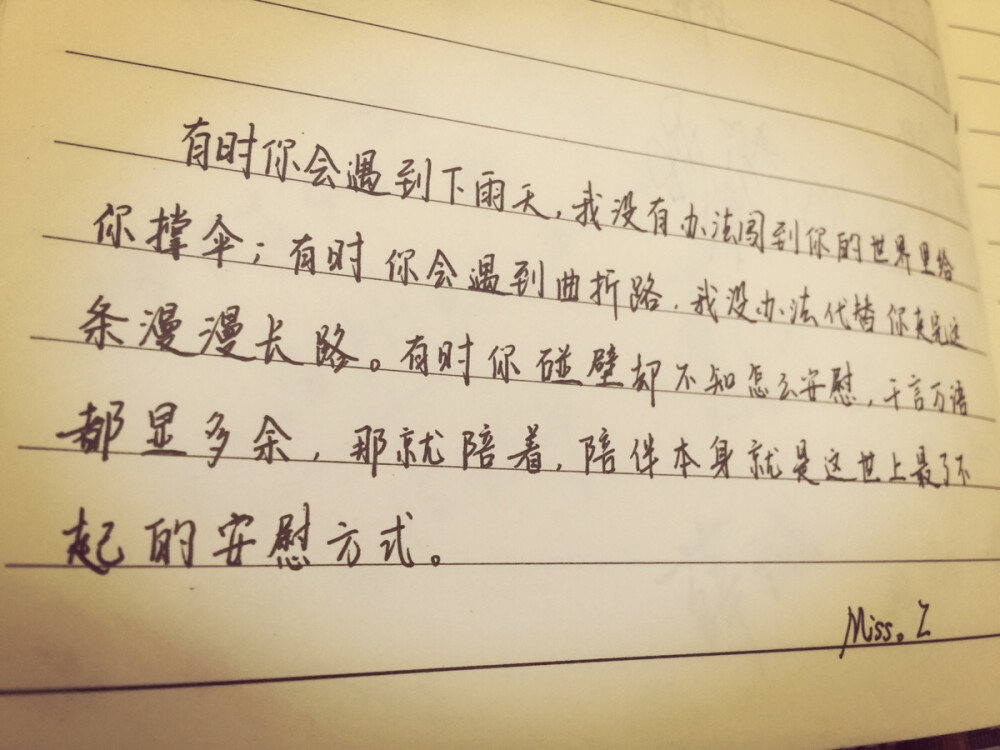 有时你会遇到下雨天,我没有办法闯到你的世界里给
你撑伞;有时你会遇到曲折路,我没办法代替你走完这
条漫漫长路。有时你碰壁却不知怎么安慰,千言万语
都显多余,那就陪着,陪伴本身就是这世上最了不
起的安慰方式。
Miss. Z